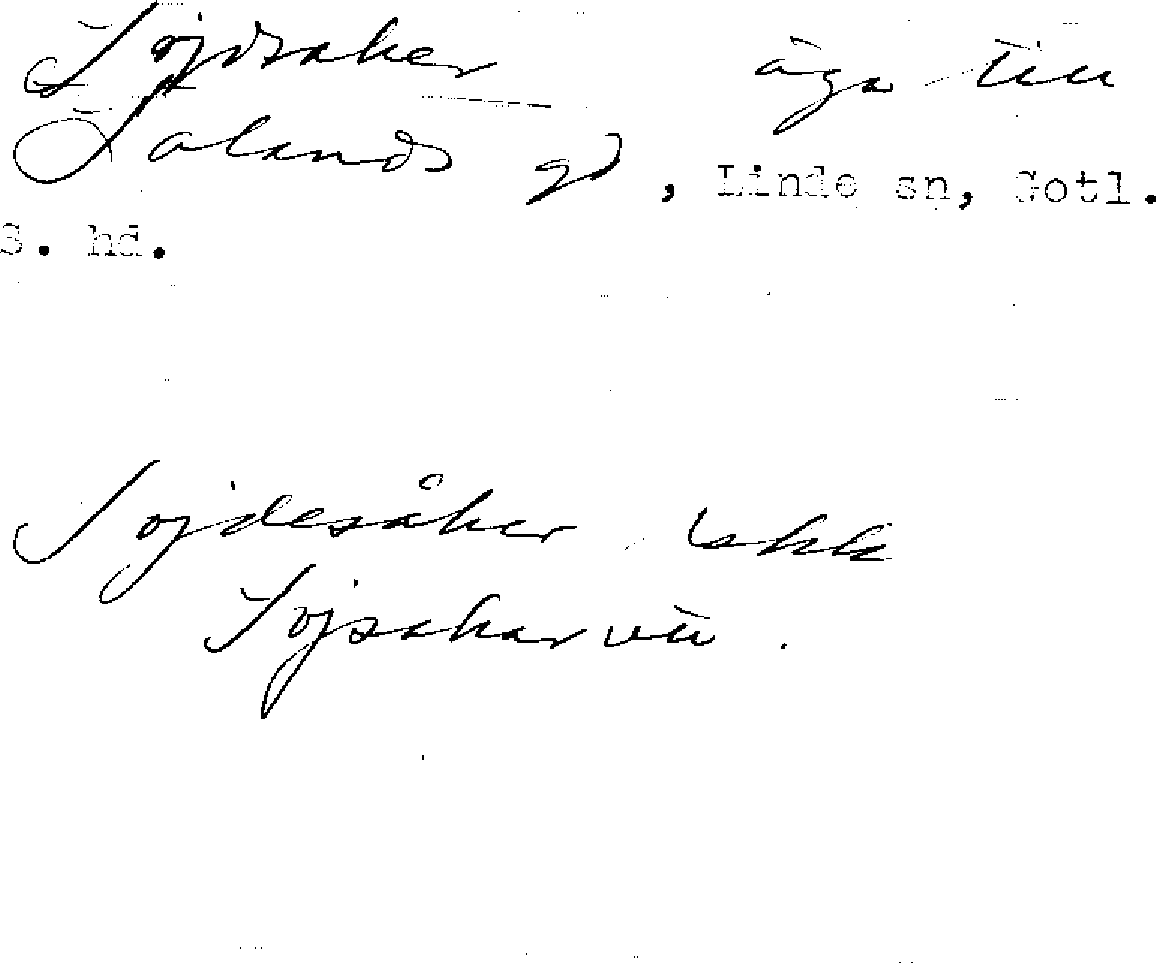 Sojdesaker äga till
Salands gd, Linde sn, Gotl.
S. hd.
Sojdesåker ekk
Sojsakar